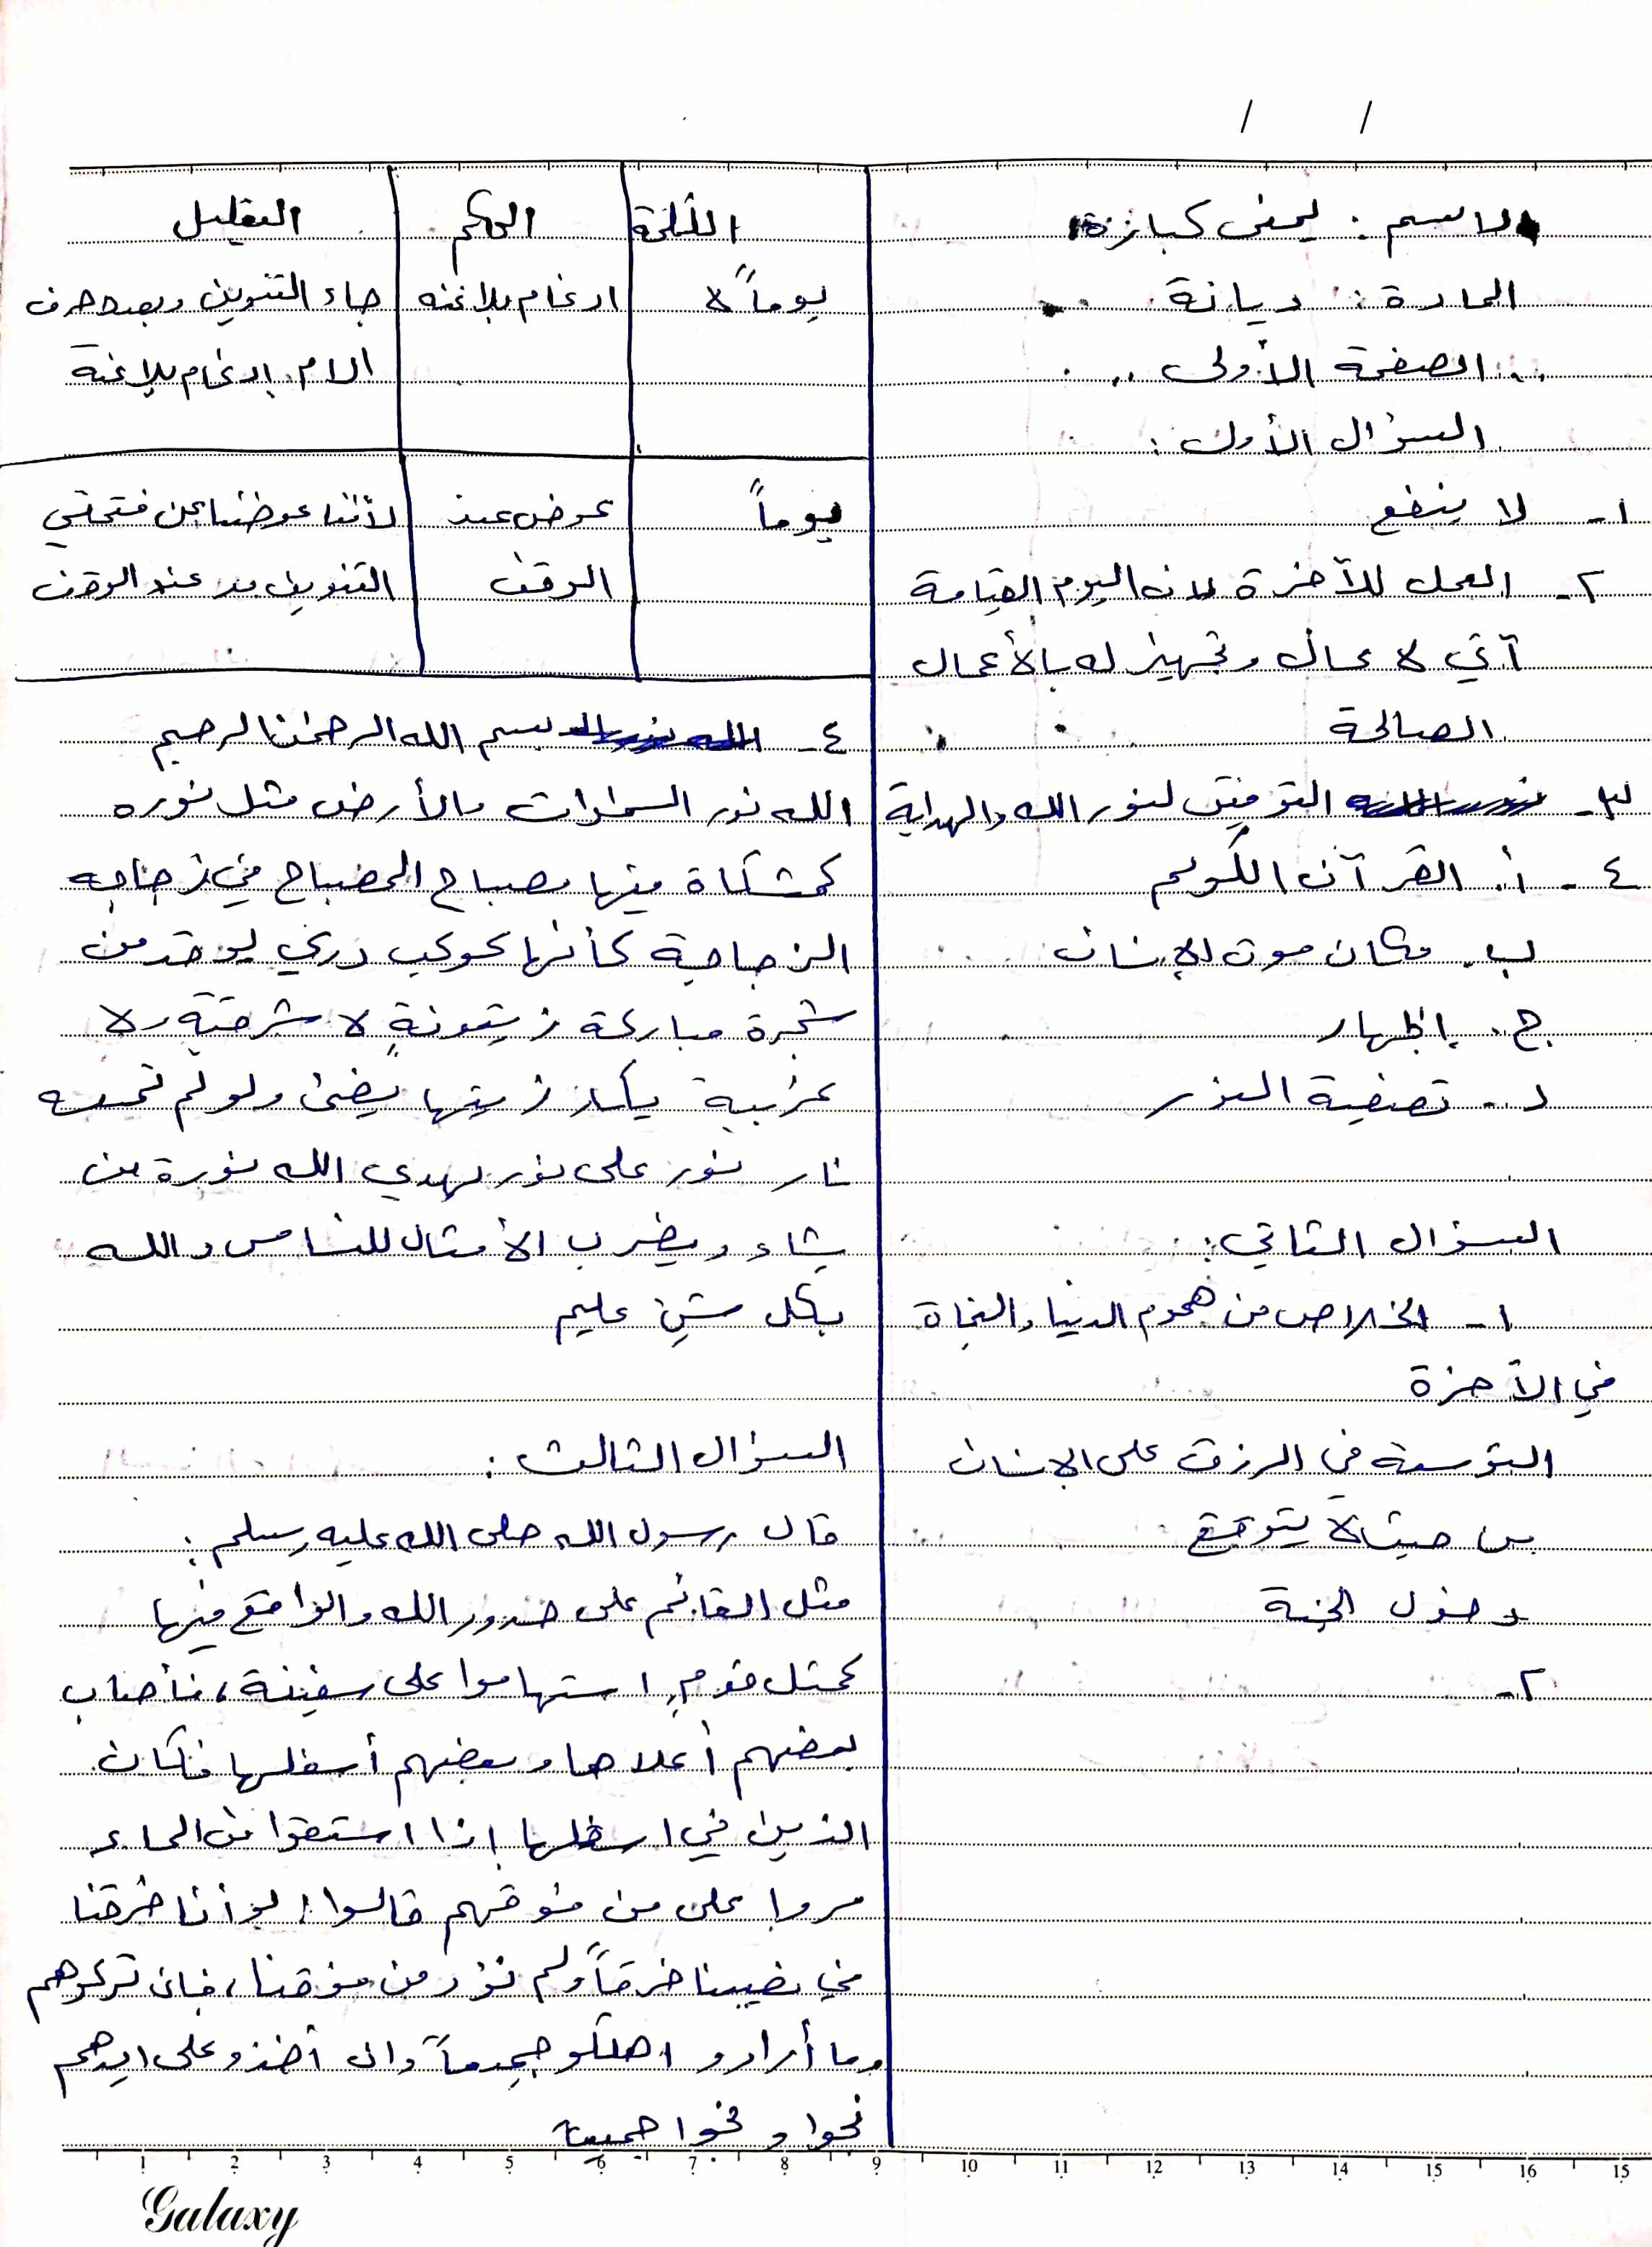 الاسم : يمنى كبازة
المادة : ديانة
الصفحة الأولى
السؤال الأول :
١- لا ينفع
٢- العمل للآخرة لان اليوم القيامة
آتي لا محال وتجهيز له بالأعمال
الصالحة
٣- التوفيق لنور الله والهداية
٤- أ. القرآن الكريم
ب. مكان موت الإنسان
ج. إظهار
د. تصفية البذر
السؤال الثاني :
١- الخلاص من هموم الدنيا والنجاة
في الآخرة
التوسعة في الرزق على الإنسان
من حيث لا يتوقع
دخول الجنة
٢-
الكلمة الحكم التعليل
يوماً لا ادغام بلا غنه جاء التنوين وبعده حرف
الام إدغام بلا غنة
يوماً عوض عند لأننا عوضنا عن فتحتي
الوقف التنوين مد عند الوقف
٤- بسم الله الرحمن الرحيم
الله نور السماوات والأرض مثل نوره
كمشكاة فيها مصباح المصباح في زجاجه
الزجاجة كأنها كوكب دري يوقد من
شجرة مباركة زيتونةٍ لا شرقية ولا
غربية يكاد زيتها يضئ ولو لم تمسه
نار نور على نور يهدي الله نورة من
يشاء ويضرب الأمثال للناس والله
بكل شئ عليم
السؤال الثالث :
قال رسول الله صلى الله عليه وسلم :
مثل القائم على حدود الله والواقع فيها
كمثل قومٍ استهاموا على سفينة، فأصاب
بعضهم أعلاها وبعضهم أسفلها فكان
الذين في اسفلها إذا استقوا من الماء
مروا على من فوقهم قالوا : لو أنا خرقنا
في نصيبنا خرقاً ولم نؤذ من فوقنا، فإن تركوهم
وما أرادو اهلكو جميعاً وان أخذو على ايدهم
نجوا و نجوا جميعا
Galaxy